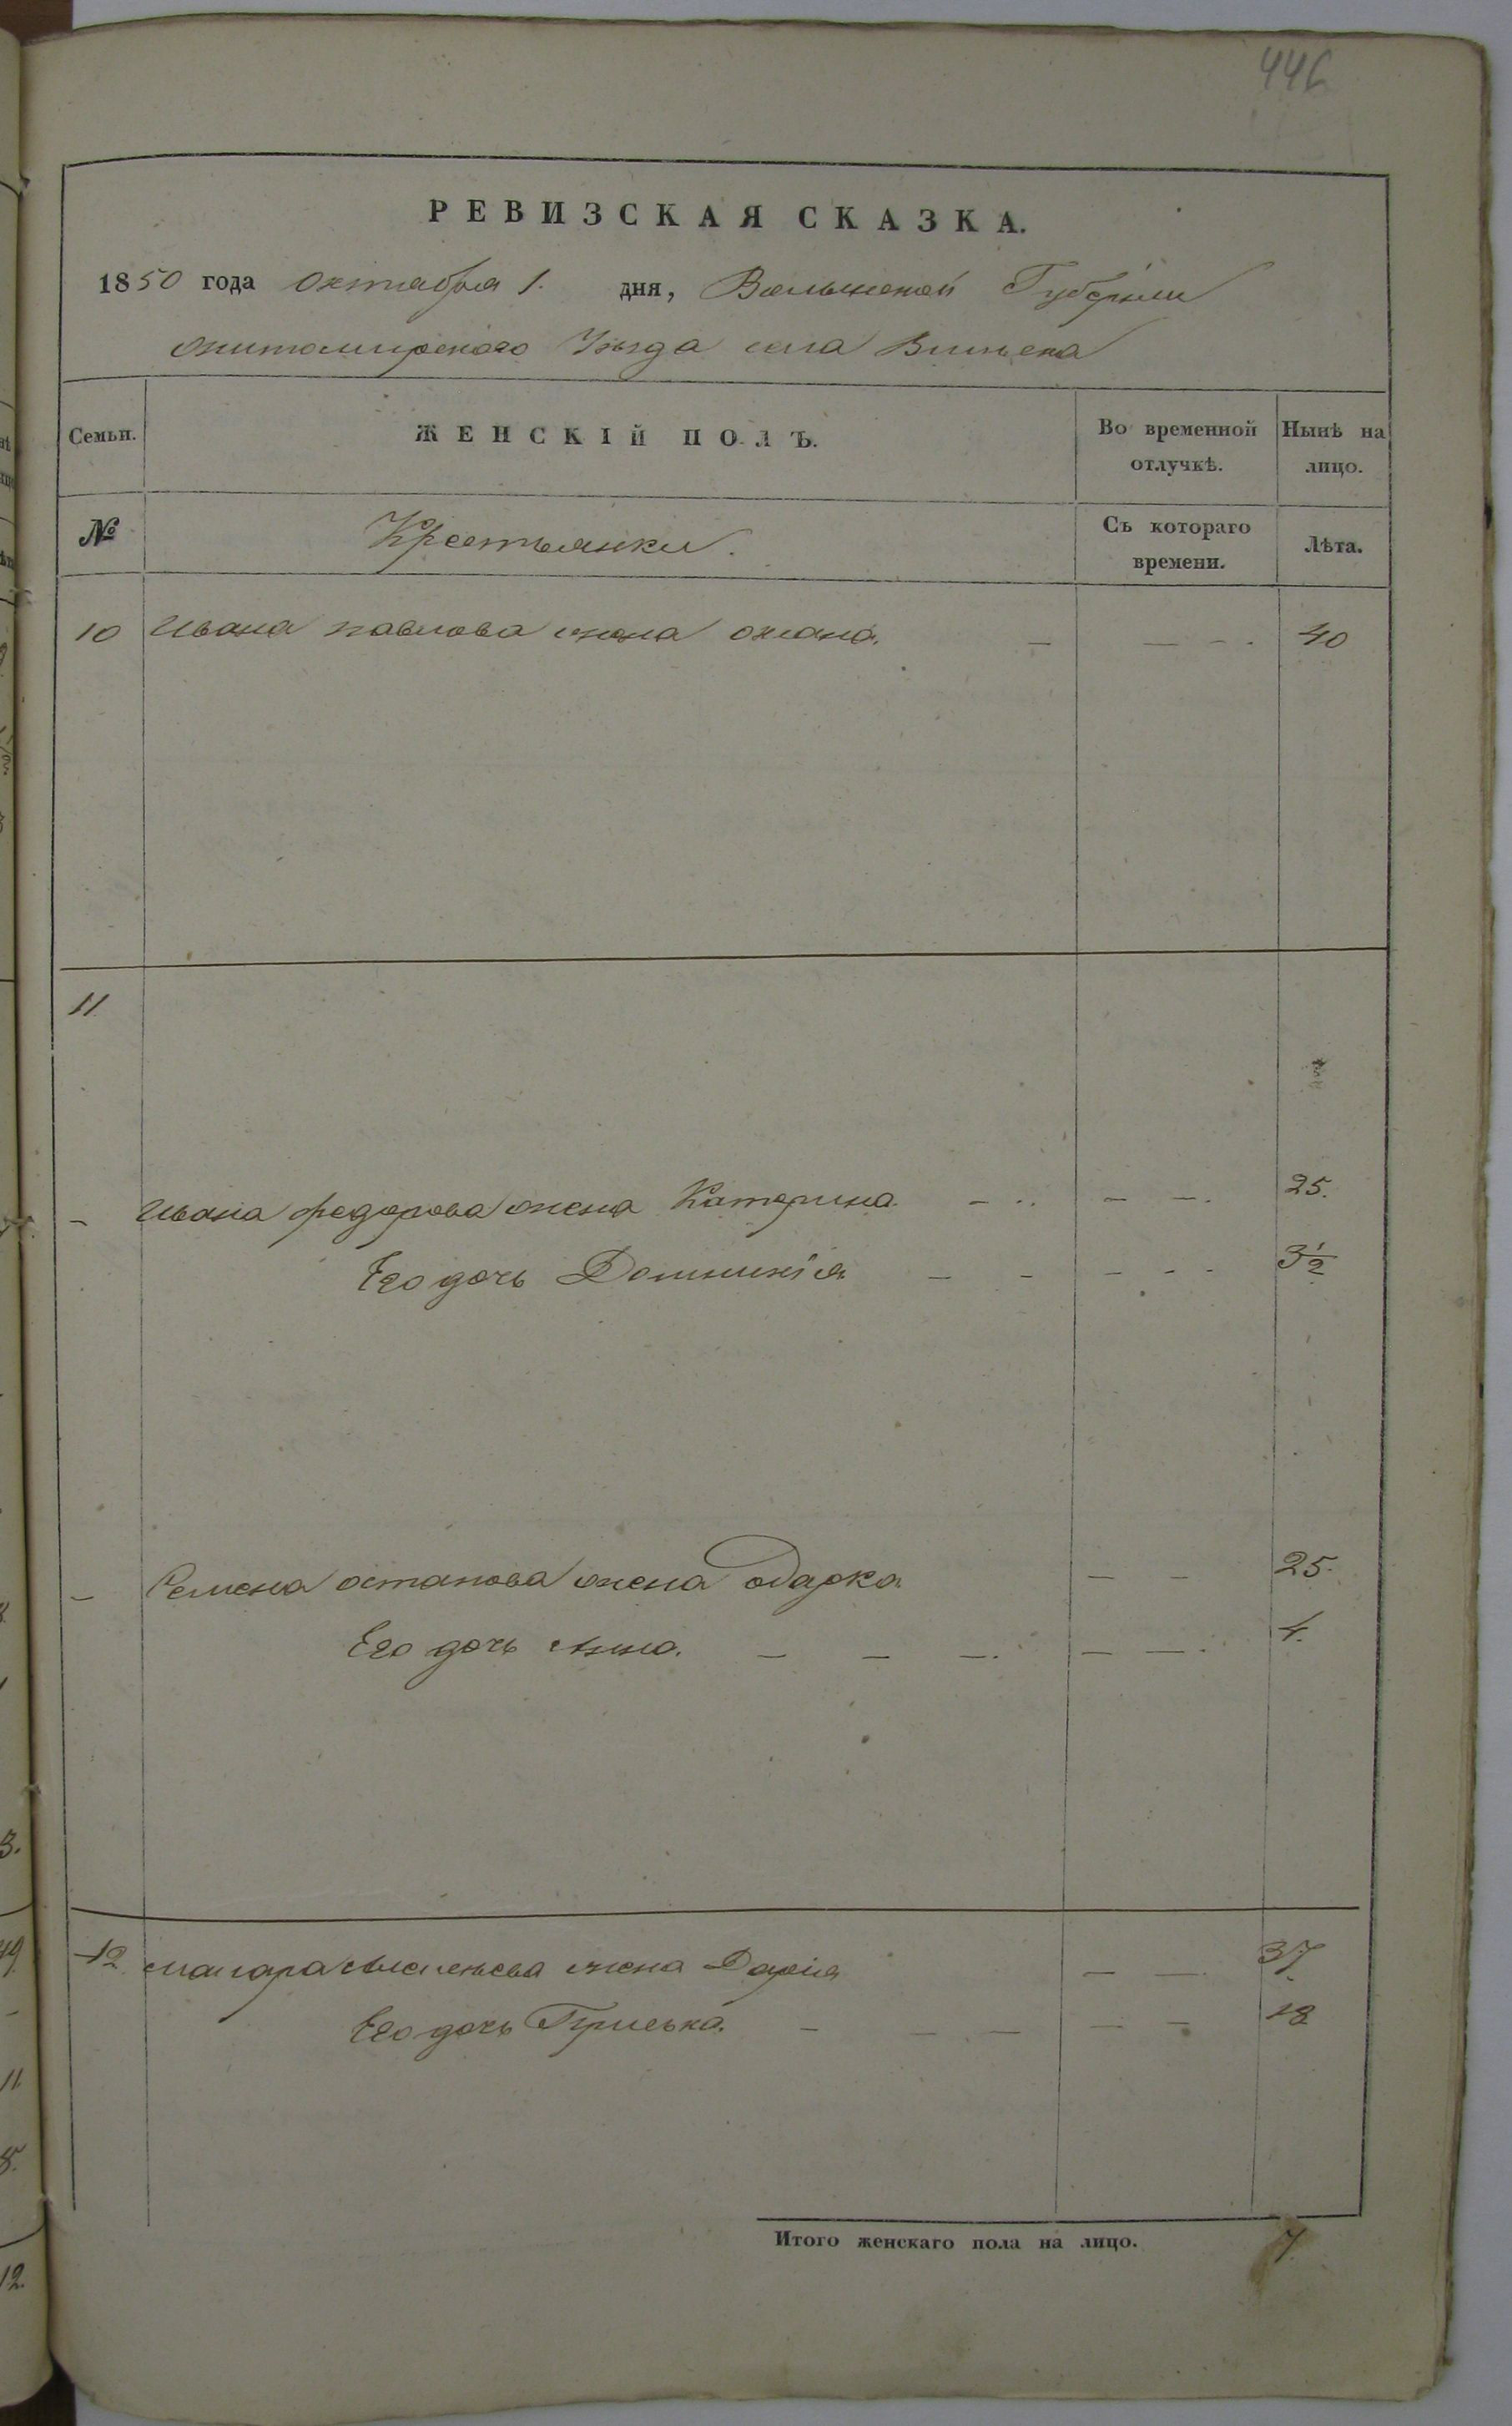 446
РЕВИЗСКАЯ СКАЗКА.
1850 года Октября 1. дня, Волынской Губернiи
житомирского Уезда села
Семьи. ЖЕНСКІЙ ПОЛЪ. Во временной отлучкѣ. Нынѣ на лицо.
№ Крестьянки. Съ котораго времени. Лѣта.
10 Ивана павлова жена — — - - 40
11
— Ивана федорова жена Катерина - - - — — 25.
Его дочь Доминикія — - - - - 3 1/2
— Семена остапова жена одарка — — 25.
Его дочь Анна. — — — — — 4.
12 макара жена Дарія — — 37.
Его дочь Приська. — — — — — 18
Итого женскаго пола на лицо. 7.